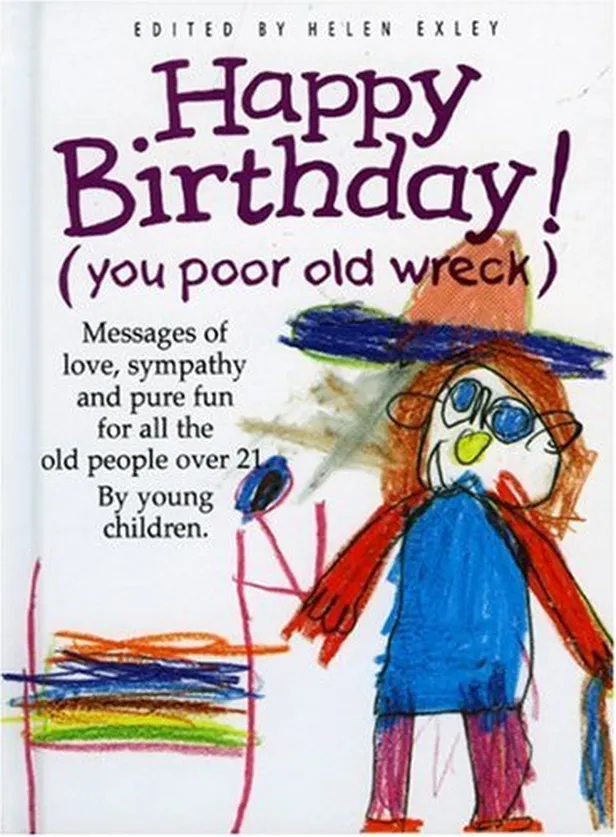 EDITED BY HELEN EXLEY
Happy
Birthday!
(you poor old wreck)
Messages of
love, sympathy
and pure fun
for all the
old people over 21.
By young
children.